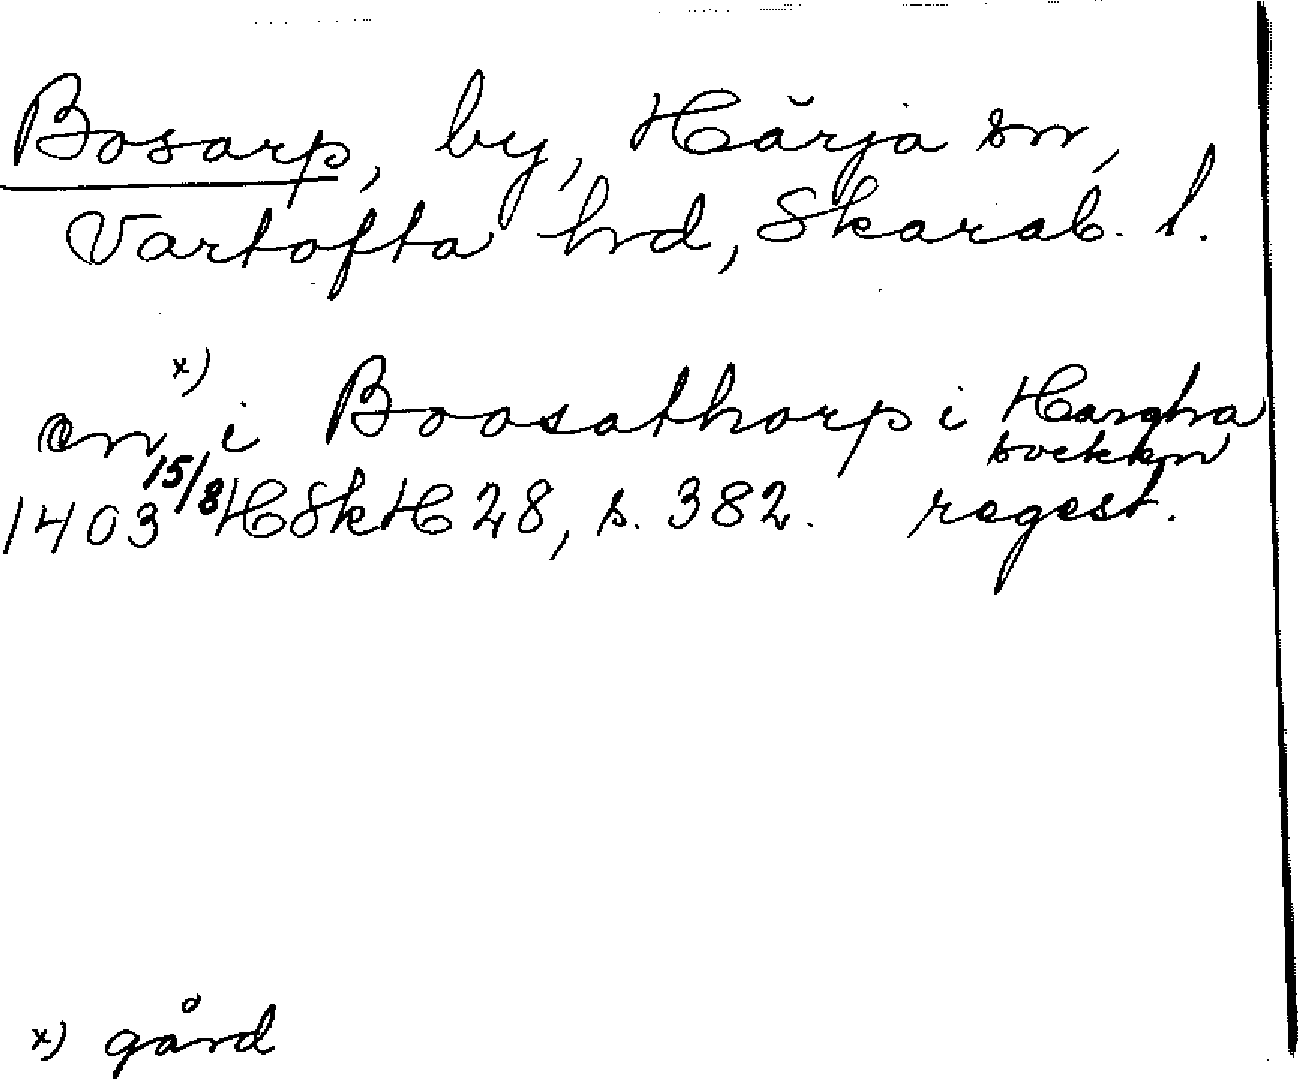 Bosarp, by, Härja sn,
Vartofta hrd, Skarab. l.
x)
en i Boosathorp i Hargha
sockn
1403 15/8 HSkH 28, s. 382. regest.
x) gård